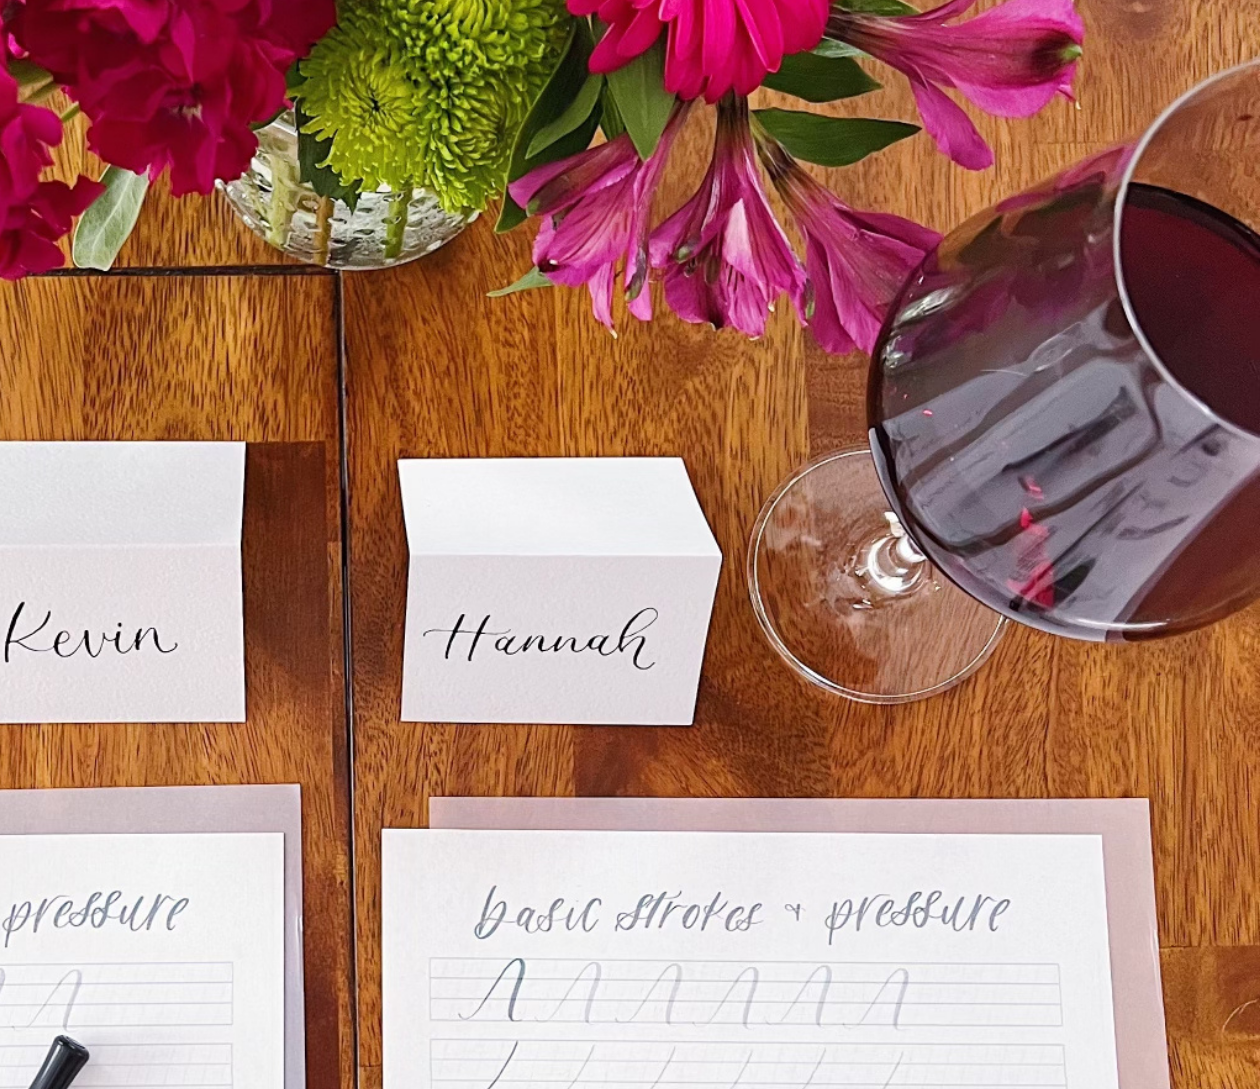 Kevin
Hannah
pressure
basic strokes + pressure